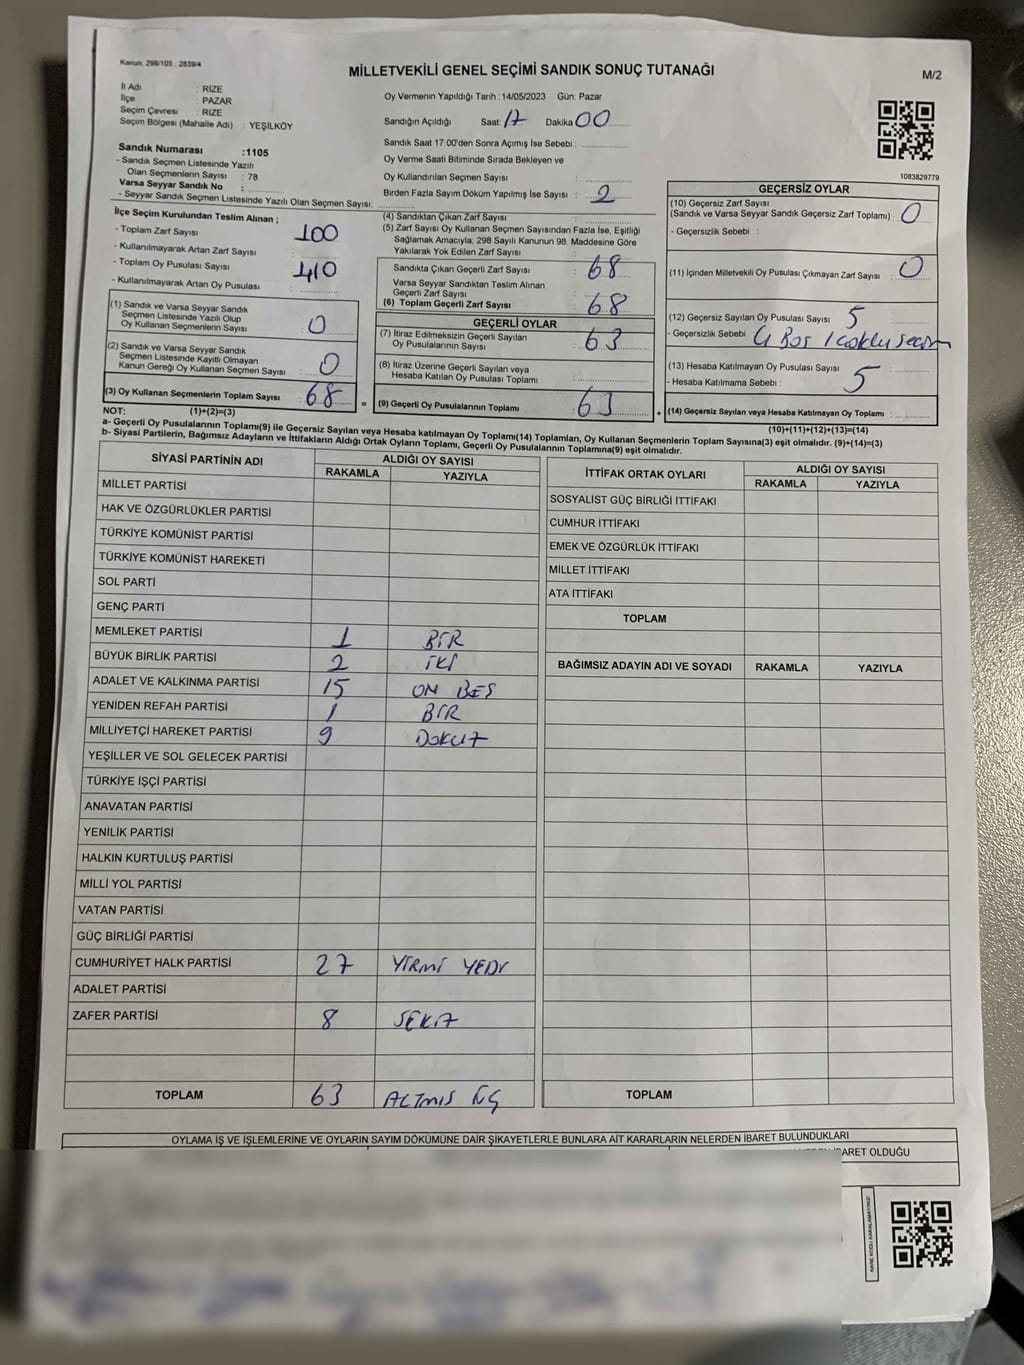 Kanun, 298/105 , 2839/4
MİLLETVEKİLİ GENEL SEÇİMİ SANDIK SONUÇ TUTANAĞI
M/2
İl Adı : RİZE
İlçe : PAZAR
Seçim Çevresi : RİZE
Seçim Bölgesi (Mahalle Adı) : YEŞİLKÖY
Sandık Numarası :1105
- Sandık Seçmen Listesinde Yazılı
Olan Seçmenlerin Sayısı : 78
Varsa Seyyar Sandık No :
- Seyyar Sandık Seçmen Listesinde Yazılı Olan Seçmen Sayısı:
Oy Vermenin Yapıldığı Tarih :14/05/2023 Gün: Pazar
Sandığın Açıldığı Saat: 17 Dakika 00
Sandık Saat 17:00'den Sonra Açımış İse Sebebi :
Oy Verme Saati Bitiminde Sırada Bekleyen ve
Oy Kullandırılan Seçmen Sayısı :
Birden Fazla Sayım Döküm Yapılmış İse Sayısı : 2
1083829779
İlçe Seçim Kurulundan Teslim Alınan ;
- Toplam Zarf Sayısı : 100
- Kullanılmayarak Artan Zarf Sayısı :
- Toplam Oy Pusulası Sayısı : 410
- Kullanılmayarak Artan Oy Pusulası :
(1) Sandık ve Varsa Seyyar Sandık
Seçmen Listesinde Yazılı Olup
Oy Kullanan Seçmenlerin Sayısı : 0
(2) Sandık ve Varsa Seyyar Sandık
Seçmen Listesinde Kayıtlı Olmayan
Kanun Gereği Oy Kullanan Seçmen Sayısı : 0
(3) Oy Kullanan Seçmenlerin Toplam Sayısı : 68
(4) Sandıktan Çıkan Zarf Sayısı :
(5) Zarf Sayısı Oy Kullanan Seçmen Sayısından Fazla İse, Eşitliği
Sağlamak Amacıyla; 298 Sayılı Kanunun 98. Maddesine Göre
Yakılarak Yok Edilen Zarf Sayısı :
Sandıkta Çıkan Geçerli Zarf Sayısı : 68
Varsa Seyyar Sandıktan Teslim Alınan
Geçerli Zarf Sayısı :
(6) Toplam Geçerli Zarf Sayısı : 68
GEÇERLİ OYLAR
(7) İtiraz Edilmeksizin Geçerli Sayılan
Oy Pusulalarının Sayısı : 63
(8) İtiraz Üzerine Geçerli Sayılan veya
Hesaba Katılan Oy Pusulası Toplamı :
= (9) Geçerli Oy Pusulalarının Toplamı : 63 +
GEÇERSİZ OYLAR
(10) Geçersiz Zarf Sayısı
(Sandık ve Varsa Seyyar Sandık Geçersiz Zarf Toplamı) : 0
- Geçersizlik Sebebi :
(11) İçinden Milletvekili Oy Pusulası Çıkmayan Zarf Sayısı : 0
(12) Geçersiz Sayılan Oy Pusulası Sayısı : 5
- Geçersizlik Sebebi : 4 Boş 1 çoklu seçim
(13) Hesaba Katılmayan Oy Pusulası Sayısı :
- Hesaba Katılmama Sebebi : 5
(14) Geçersiz Sayılan veya Hesaba Katılmayan Oy Toplamı :
(10)+(11)+(12)+(13)=(14)
NOT: (1)+(2)=(3)
a- Geçerli Oy Pusulalarının Toplamı(9) ile Geçersiz Sayılan veya Hesaba katılmayan Oy Toplamı(14) Toplamları, Oy Kullanan Seçmenlerin Toplam Sayısına(3) eşit olmalıdır. (9)+(14)=(3)
b- Siyasi Partilerin, Bağımsız Adayların ve İttifakların Aldığı Ortak Oyların Toplamı, Geçerli Oy Pusulalarının Toplamına(9) eşit olmalıdır.
SİYASİ PARTİNİN ADI ALDIĞI OY SAYISI
RAKAMLA YAZIYLA
MİLLET PARTİSİ
HAK VE ÖZGÜRLÜKLER PARTİSİ
TÜRKİYE KOMÜNİST PARTİSİ
TÜRKİYE KOMÜNİST HAREKETİ
SOL PARTİ
GENÇ PARTİ
MEMLEKET PARTİSİ 1 BİR
BÜYÜK BİRLİK PARTİSİ 2 İKİ
ADALET VE KALKINMA PARTİSİ 15 ON BEŞ
YENİDEN REFAH PARTİSİ 1 BİR
MİLLİYETÇİ HAREKET PARTİSİ 9 DOKUZ
YEŞİLLER VE SOL GELECEK PARTİSİ
TÜRKİYE İŞÇİ PARTİSİ
ANAVATAN PARTİSİ
YENİLİK PARTİSİ
HALKIN KURTULUŞ PARTİSİ
MİLLİ YOL PARTİSİ
VATAN PARTİSİ
GÜÇ BİRLİĞİ PARTİSİ
CUMHURİYET HALK PARTİSİ 27 YİRMİ YEDİ
ADALET PARTİSİ
ZAFER PARTİSİ 8 SEKİZ
TOPLAM 63 ALTMIŞ ÜÇ
İTTİFAK ORTAK OYLARI ALDIĞI OY SAYISI
RAKAMLA YAZIYLA
SOSYALİST GÜÇ BİRLİĞİ İTTİFAKI
CUMHUR İTTİFAKI
EMEK VE ÖZGÜRLÜK İTTİFAKI
MİLLET İTTİFAKI
ATA İTTİFAKI
TOPLAM
BAĞIMSIZ ADAYIN ADI VE SOYADI RAKAMLA YAZIYLA
TOPLAM
OYLAMA İŞ VE İŞLEMLERİNE VE OYLARIN SAYIM DÖKÜMÜNE DAİR ŞİKAYETLERLE BUNLARA AİT KARARLARIN NELERDEN İBARET BULUNDUKLARI
OLDUĞU
KARE KODU KARALAMAYINIZ!